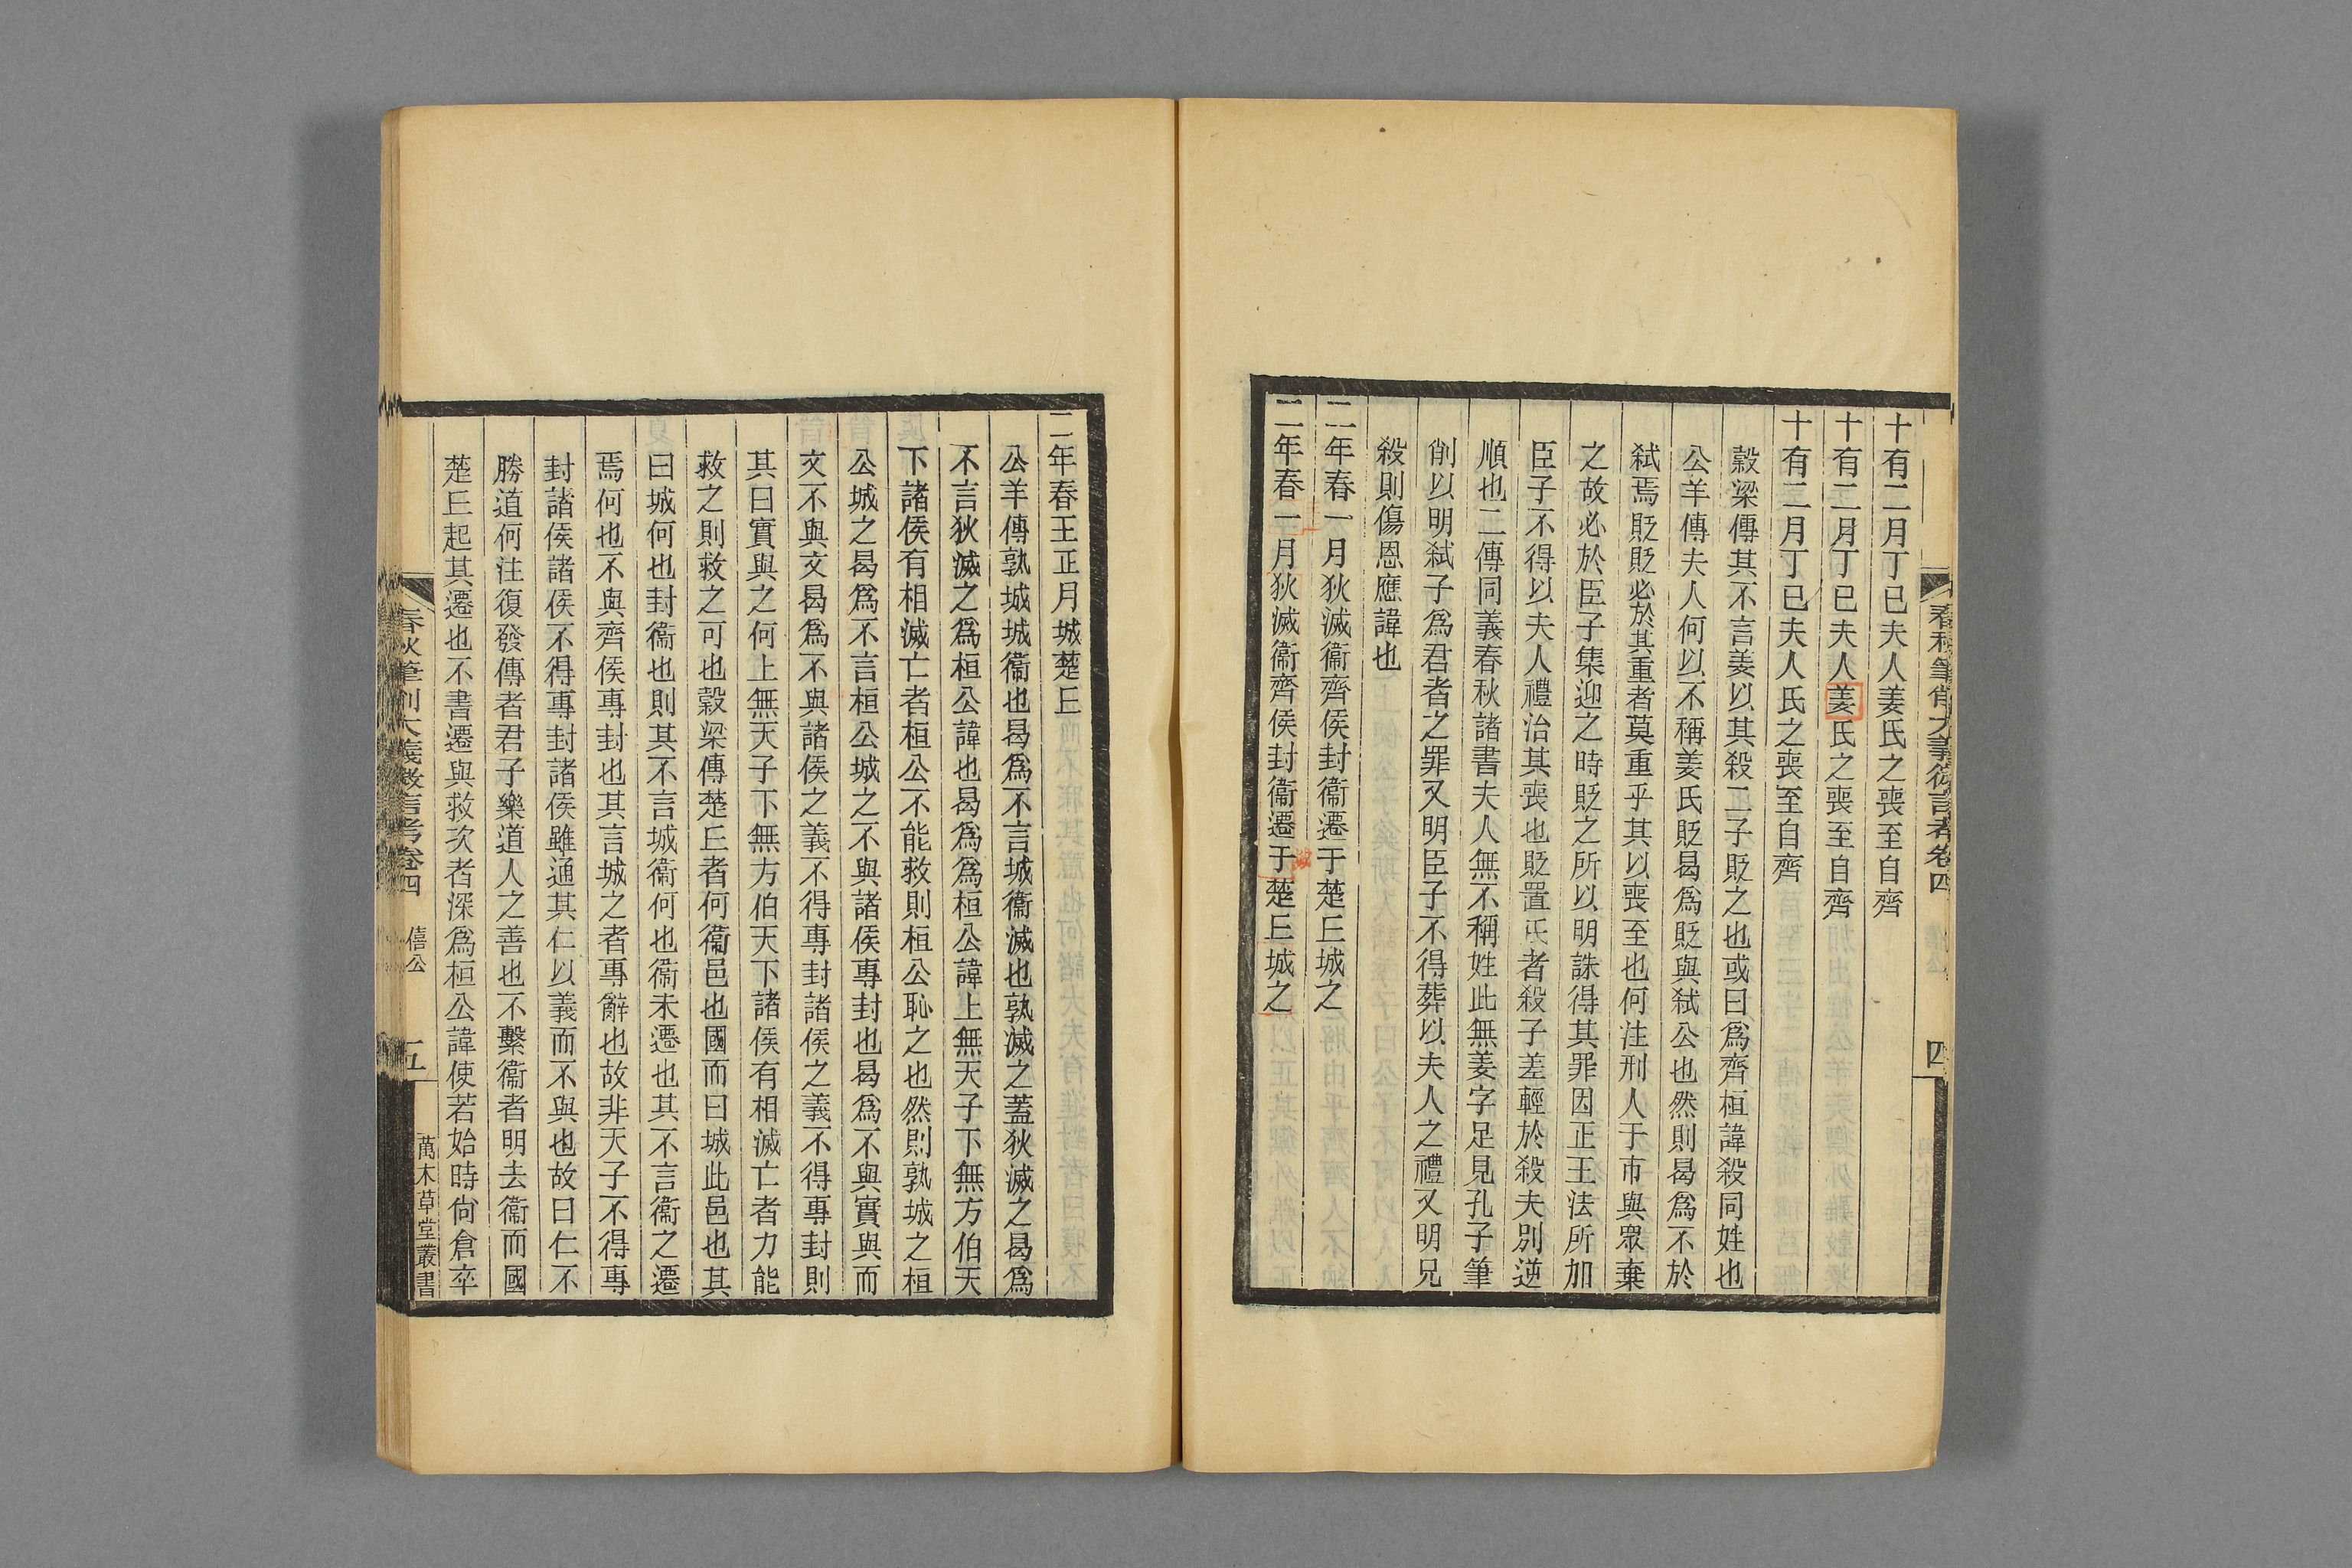 十有二月丁巳夫人姜氏之喪至自齊
十有二月丁巳夫人姜氏之喪至自齊
十有二月丁巳夫人氏之喪至自齊
穀梁傳其不言姜以其殺二子貶之也或曰爲齊桓諱殺同姓也
公羊傳夫人何以不稱姜氏貶曷爲貶與弒公也然則曷爲不於
弒焉貶貶必於其重者莫重乎其以喪至也何注刑人于市與眾棄
之故必於臣子集迎之時貶之所以明誅得其罪因正王法所加
臣子不得以夫人禮治其喪也貶置氏者殺子差輕於殺夫別逆
順也二傳同義春秋諸書夫人無不稱姓此無姜字足見孔子筆
削以明弒子爲君者之罪又明臣子不得葬以夫人之禮又明兄
殺則傷恩應諱也
二年春一月狄滅衞齊侯封衞遷于楚丘城之
二年春一月狄滅衞齊侯封衞遷于楚丘城之
春秋筆削大義微言考卷四
四
二年春王正月城楚丘
公羊傳孰城城衞也曷爲不言城衞滅也孰滅之蓋狄滅之曷爲
不言狄滅之爲桓公諱也曷爲爲桓公諱上無天子下無方伯天
下諸侯有相滅亡者桓公不能救則桓公恥之也然則孰城之桓
公城之曷爲不言桓公城之不與諸侯專封也曷爲不與實與而
文不與文曷爲不與諸侯之義不得專封諸侯之義不得專封則
其曰實與之何上無天子下無方伯天下諸侯有相滅亡者力能
救之則救之可也穀梁傳楚丘者何衞邑也國而曰城此邑也其
曰城何也封衞也則其不言城衞何也衞未遷也其不言衞之遷
焉何也不與齊侯專封也其言城之者專辭也故非天子不得專
封諸侯諸侯不得專封諸侯雖通其仁以義而不與也故曰仁不
勝道何注復發傳者君子樂道人之善也不繫衞者明去衞而國
楚丘起其遷也不書遷與救次者深爲桓公諱使若始時尙倉卒
春秋筆削大義微言考卷四
僖公
五
萬木草堂叢書